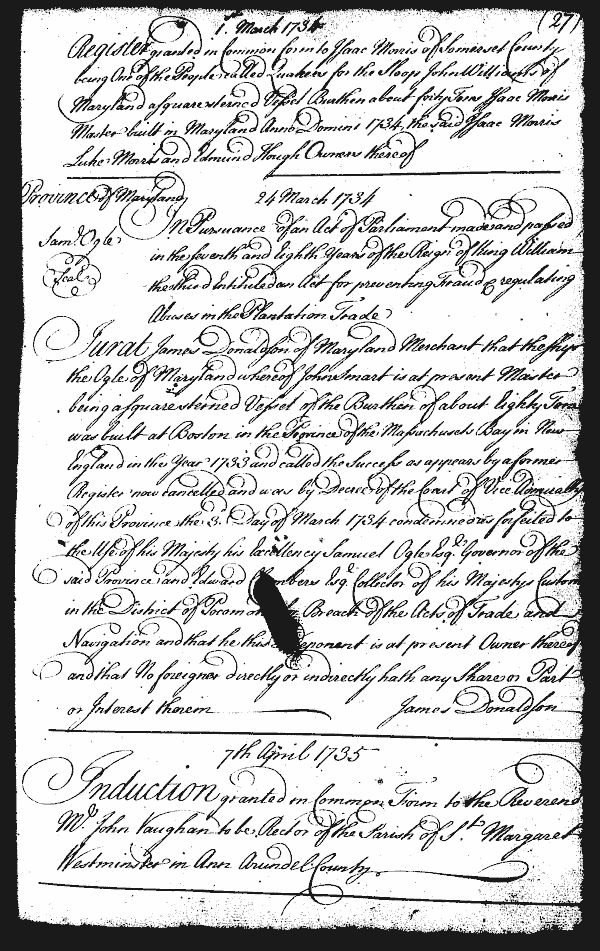 (27)
1st March 1734
Register granted in Common form to Isaac Morris of Somerset County
being One of the People called Quakers for the Sloop John Williams of
Maryland a square sterned Vessel Burthen about forty Tons Isaac Morris
Master built in Maryland Anno Domini 1734, the said Isaac Morris
Luke Morris and Edmund Hough Owners thereof
Province of Maryland
24 March 1734
Sam: Ogle
Seal
In Pursuance of an Act of Parliament made and passed
in the seventh and Eighth Years of the Reign of King William
the third Intituled an Act for preventing Frauds & regulating
Abuses in the Plantation Trade
Jurat James Donaldson of Maryland Merchant that the ship
the Ogle of Maryland whereof John Smart is at present Master
being a square sterned Vessel of the Burthen of about Eighty Tons
was built at Boston in the Province of the Massachusets Bay in New
England in the Year 1733 and called the Success as appears by a former
Register now cancelled and was by Decree of the Court of Vice Admiralty
of this Province the 3d Day of March 1734 condemned as forfeited to
the Use of his Majesty his Excellency Samuel Ogle Esqr. Governor of the
said Province and Edward Esqr. Collector of his Majestys Customs
in the District of for Breach of the Acts of Trade and
Navigation and that he this Deponent is at present Owner thereof
and that No foreigner directly or indirectly hath any Share or Part
or Interest therein James Donaldson
7th April 1735
Induction granted in Common Form to the Reverend
Mr. John Vaughan to be Rector of the Parish of St. Margaret
Westminster in Ann Arundel County